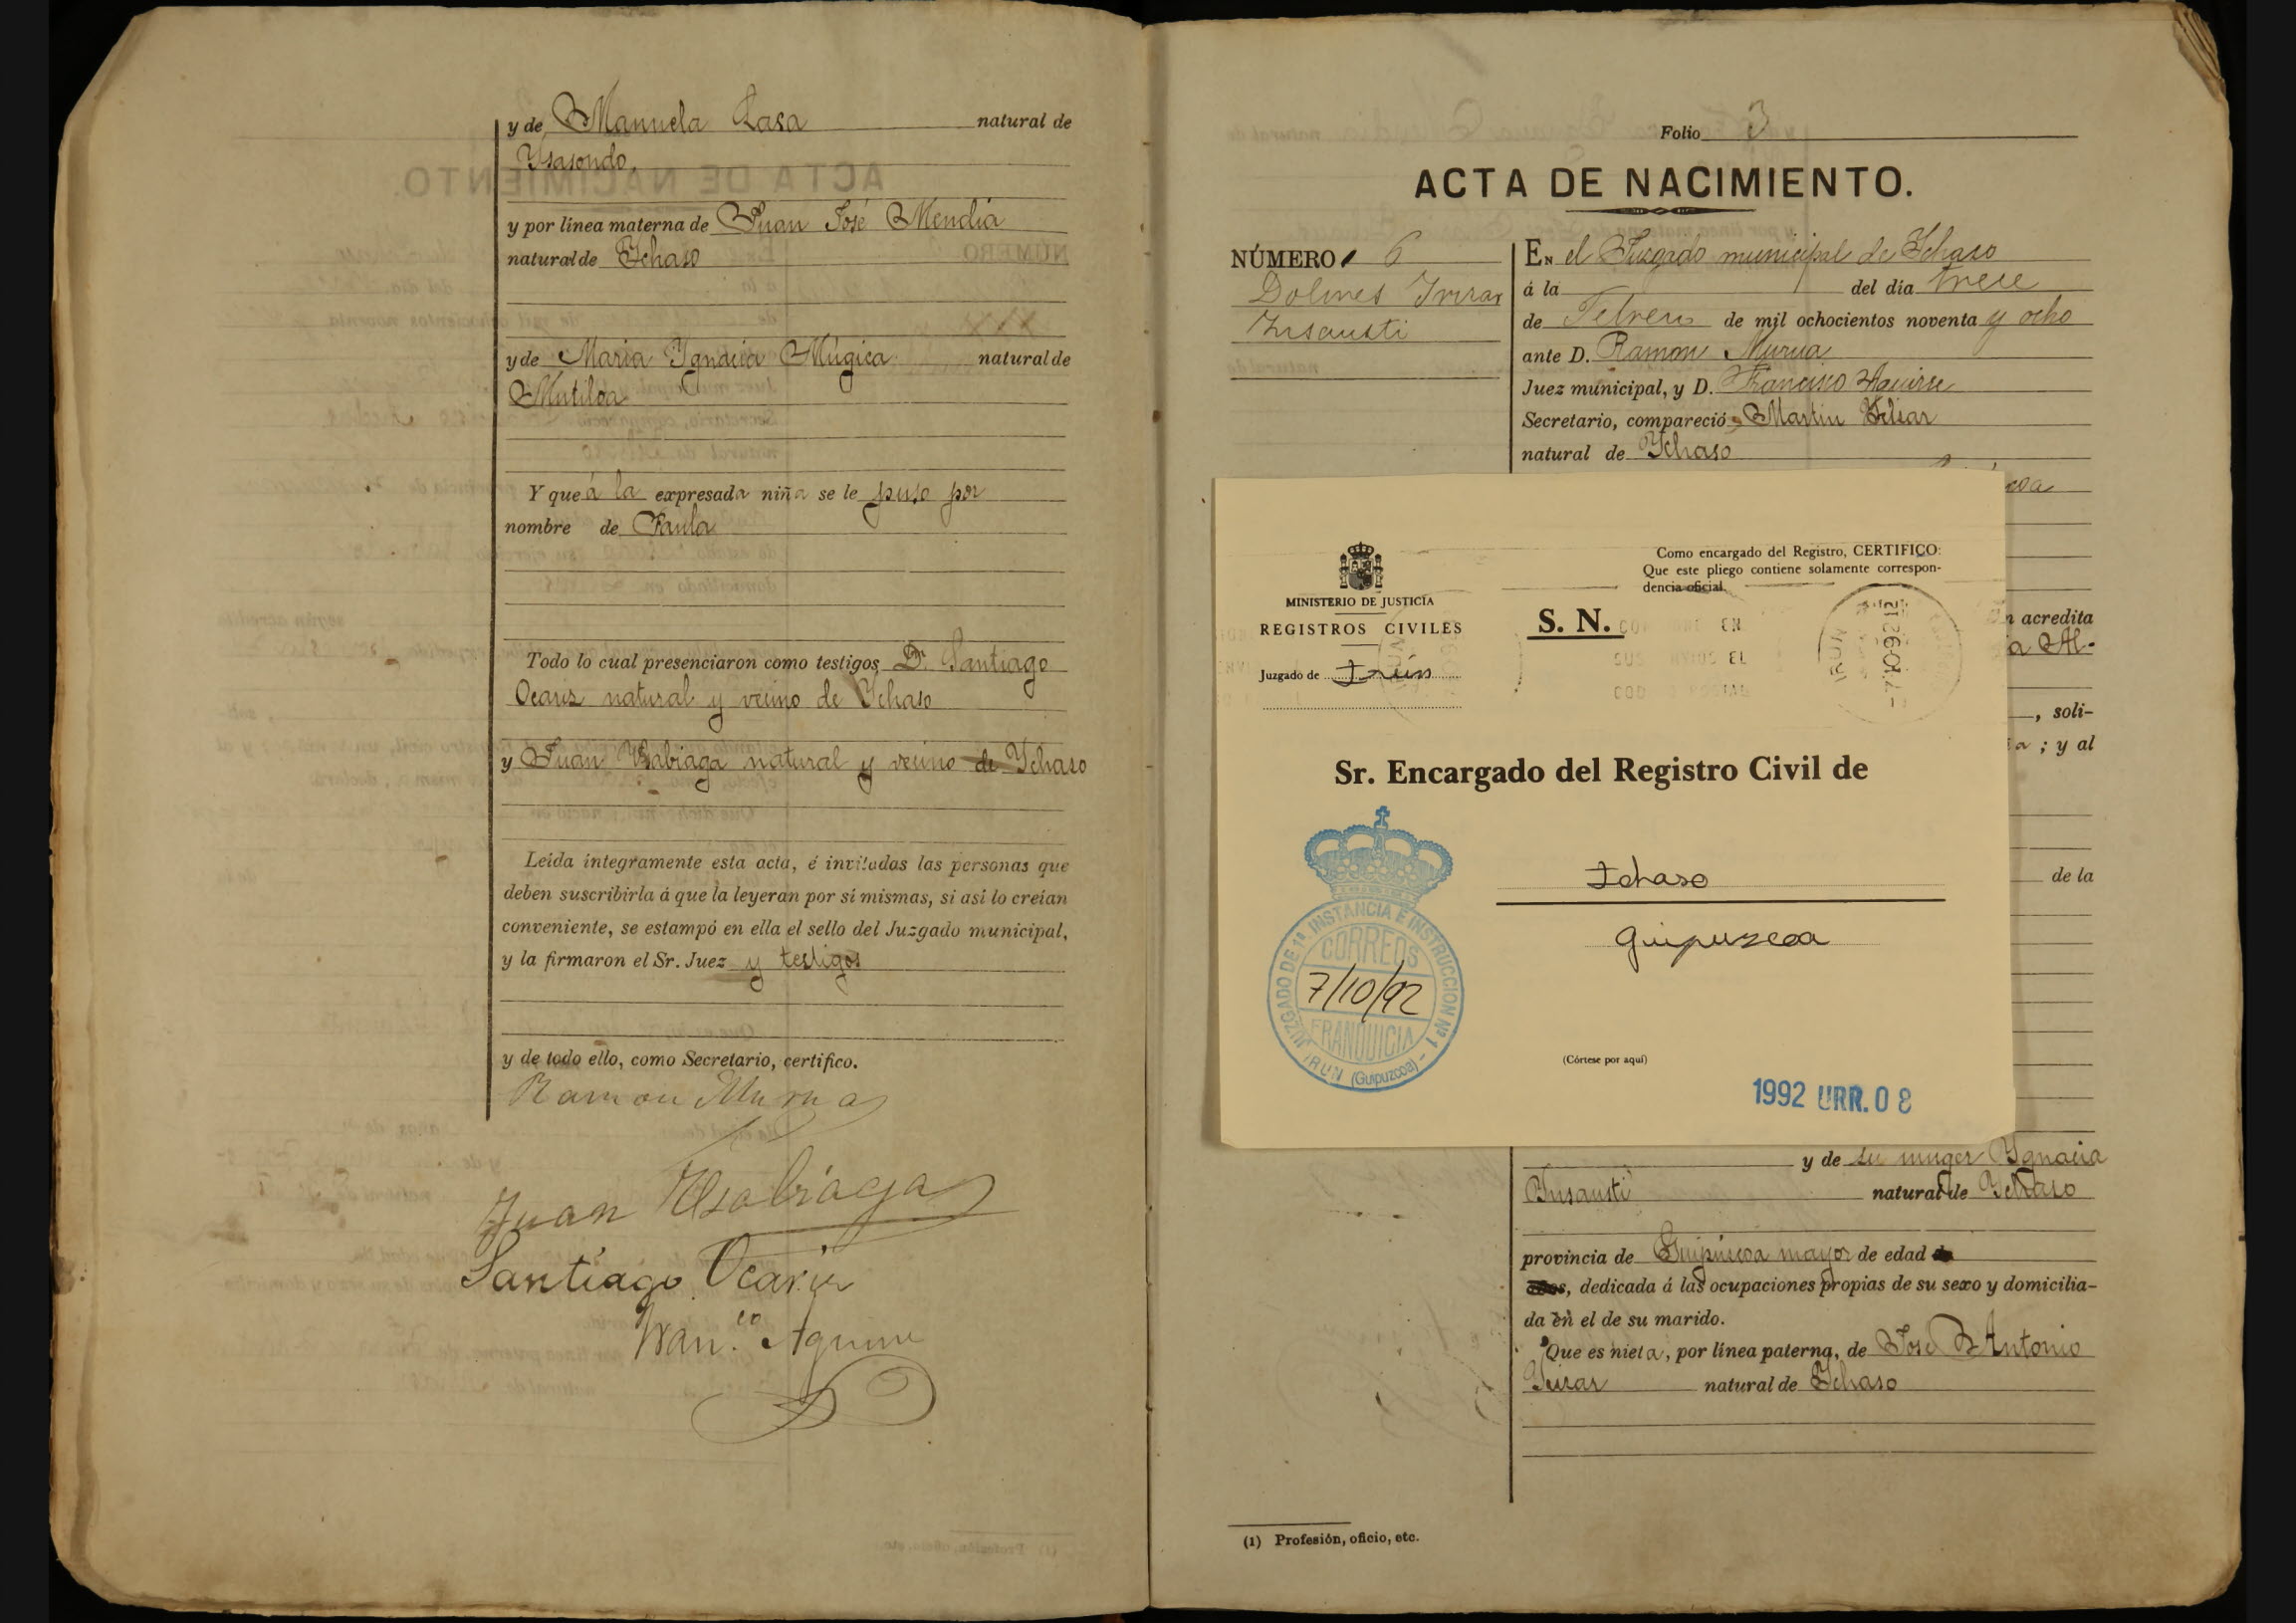 y de Manuela Lasa natural de
Ysasondo.
y por línea materna de Juan José Mendía
natural de Ychaso
y de Maria Ygnacia Múgica natural de
Mutiloa
Y que á la expresada niña se le puso por
nombre de Paula
Todo lo cual presenciaron como testigos Dn. Santiago
Ocariz natural y vecino de Ychaso
y Juan Usabiaga natural y vecino de Ychaso
Leída íntegramente esta acta, é invitadas las personas que
deben suscribirla á que la leyeran por sí mismas, si así lo creían
conveniente, se estampó en ella el sello del Juzgado municipal,
y la firmaron el Sr. Juez y testigos
y de todo ello, como Secretario, certifico.
Ramon Murua
Juan Usabiaga
Santiago Ocariz
Franco. Aguirre
Folio 3
ACTA DE NACIMIENTO.
NÚMERO 6
Dolores Irizar
Insausti
En el Juzgado municipal de Ychaso
á la del día trece
de Febrero de mil ochocientos noventa y ocho
ante D. Ramon Murua
Juez municipal, y D. Francisco Aguirre
Secretario, compareció Martin
natural de Ychaso
coa
MINISTERIO DE JUSTICIA
REGISTROS CIVILES
Juzgado de Irún
S. N.
Como encargado del Registro, CERTIFICO:
Que este pliego contiene solamente correspon-
dencia oficial.
IRUN
Sr. Encargado del Registro Civil de
Ichaso
Guipuzcoa
JUZGADO DE 1ª INSTANCIA E INSTRUCCION Nº 1 - IRUN (Guipuzcoa)
CORREOS
7/10/92
FRANQUICIA
(Córtese por aquí)
1992 URR. 08
n acredita
a Al-
, soli-
a ; y al
de la
y de su muger Ygnacia
Insausti natural de Ychaso
provincia de Guipúzcoa mayor de edad
, dedicada á las ocupaciones propias de su sexo y domicilia-
da en el de su marido.
Que es nieta, por línea paterna, de José Antonio
Irizar natural de Ychaso
(1) Profesión, oficio, etc.